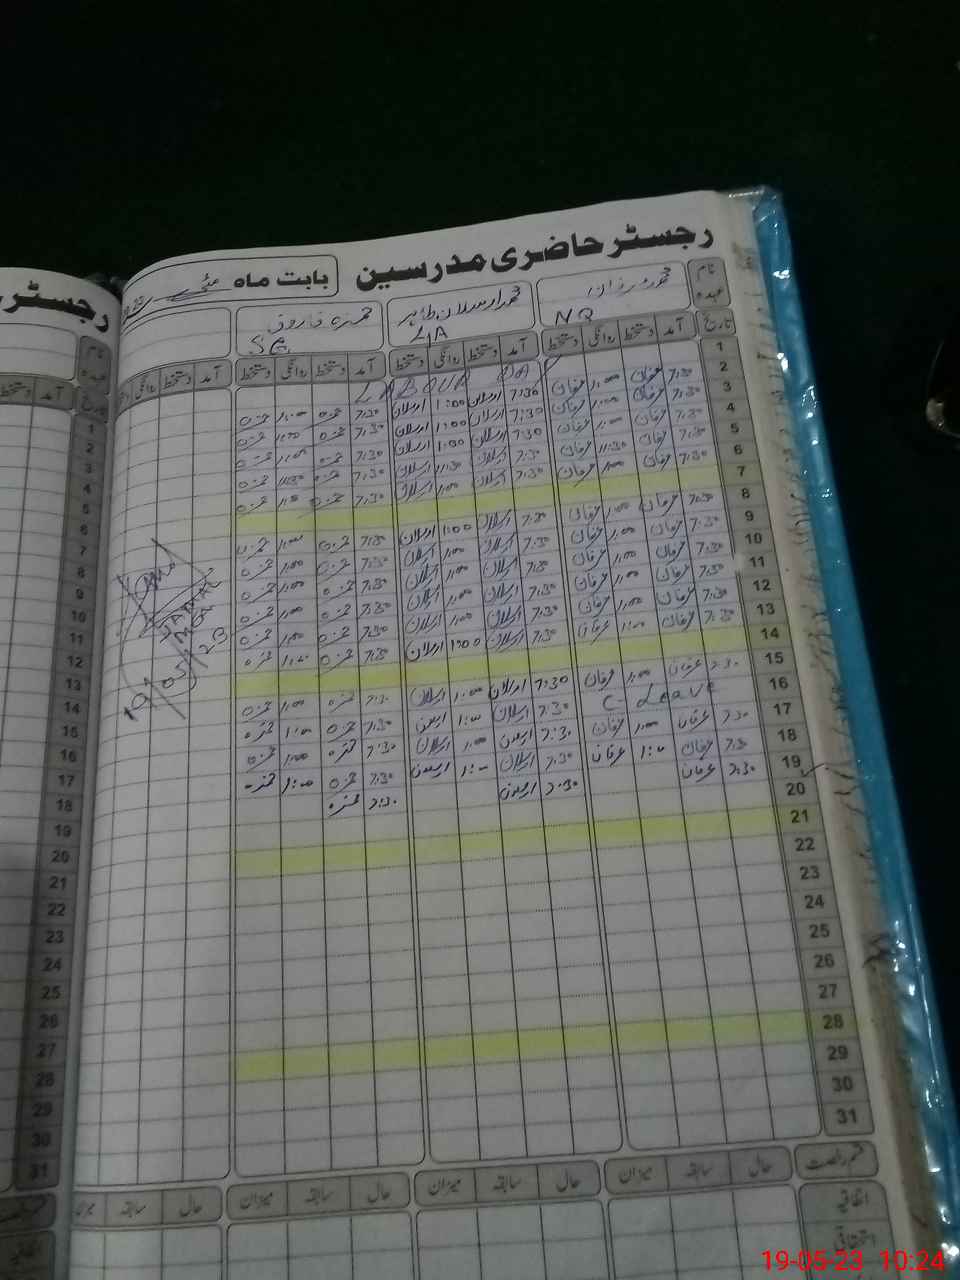 رجسٹر حاضری مدرسین
بابت ماہ مئی
نام
عہدہ
محمد عرفان
NQ
محمد ارسلان طاہر
LA
حمزہ فاروق
تاریخ
آمد دستخط روانگی دستخط آمد دستخط روانگی دستخط آمد دستخط روانگی دستخط آمد دستخط روانگی
1 LABOUR DAY
2 7:30 عرفان 1:00 عرفان 7:30 ارسلان 1:00 ارسلان 7:30 حمزہ 1:00 حمزہ
3 7:30 عرفان 1:00 عرفان 7:30 ارسلان 1:00 ارسلان 7:30 حمزہ 1:00 حمزہ
4 7:30 عرفان 1:00 عرفان 7:30 ارسلان 1:00 ارسلان 7:30 حمزہ 1:00 حمزہ
5 7:30 عرفان 11:30 عرفان 7:30 ارسلان 11:30 ارسلان 7:30 حمزہ 11:30 حمزہ
6 7:30 عرفان 1:00 عرفان 7:30 ارسلان 1:00 ارسلان 7:30 حمزہ 1:00 حمزہ
7
8 7:30 عرفان 1:00 عرفان 7:30 ارسلان 1:00 ارسلان 7:30 حمزہ 1:00 حمزہ
9 7:30 عرفان 1:00 عرفان 7:30 ارسلان 1:00 ارسلان 7:30 حمزہ 1:00 حمزہ
10 7:30 عرفان 1:00 عرفان 7:30 ارسلان 1:00 ارسلان 7:30 حمزہ 1:00 حمزہ
11 7:30 عرفان 1:00 عرفان 7:30 ارسلان 1:00 ارسلان 7:30 حمزہ 1:00 حمزہ
12 7:30 عرفان 1:00 عرفان 7:30 ارسلان 1:00 ارسلان 7:30 حمزہ 1:00 حمزہ
13 7:30 عرفان 1:00 عرفان 7:30 ارسلان 1:00 ارسلان 7:30 حمزہ 1:00 حمزہ
14
15 7:30 عرفان 1:00 عرفان 7:30 ارسلان 1:00 ارسلان 7:30 حمزہ 1:00 حمزہ
16 C-Leave 7:30 ارسلان 1:00 ارسلان 7:30 حمزہ 1:00 حمزہ
17 7:30 عرفان 1:00 عرفان 7:30 ارسلان 1:00 ارسلان 7:30 حمزہ 1:00 حمزہ
18 7:30 عرفان 1:00 عرفان 7:30 ارسلان 1:00 ارسلان 7:30 حمزہ 1:00 حمزہ
19 7:30 عرفان 7:30 ارسلان 7:30 حمزہ
20
21
22
23
24
25
26
27
28
29
30
31
قسم رخصت حال سابقہ میزان حال سابقہ میزان حال سابقہ میزان حال سابقہ
اتفاقیہ
استحقاقی
19/05/23
رجسٹر
نام
عہدہ
تاریخ
آمد دستخط
1
2
3
4
5
6
7
8
9
10
11
12
13
14
15
16
17
18
19
20
21
22
23
24
25
26
27
28
29
30
31
19-05-23 10:24